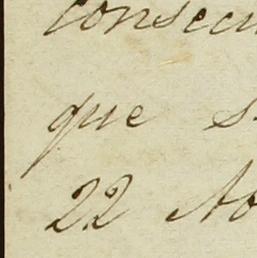 consecu
que s
22 No